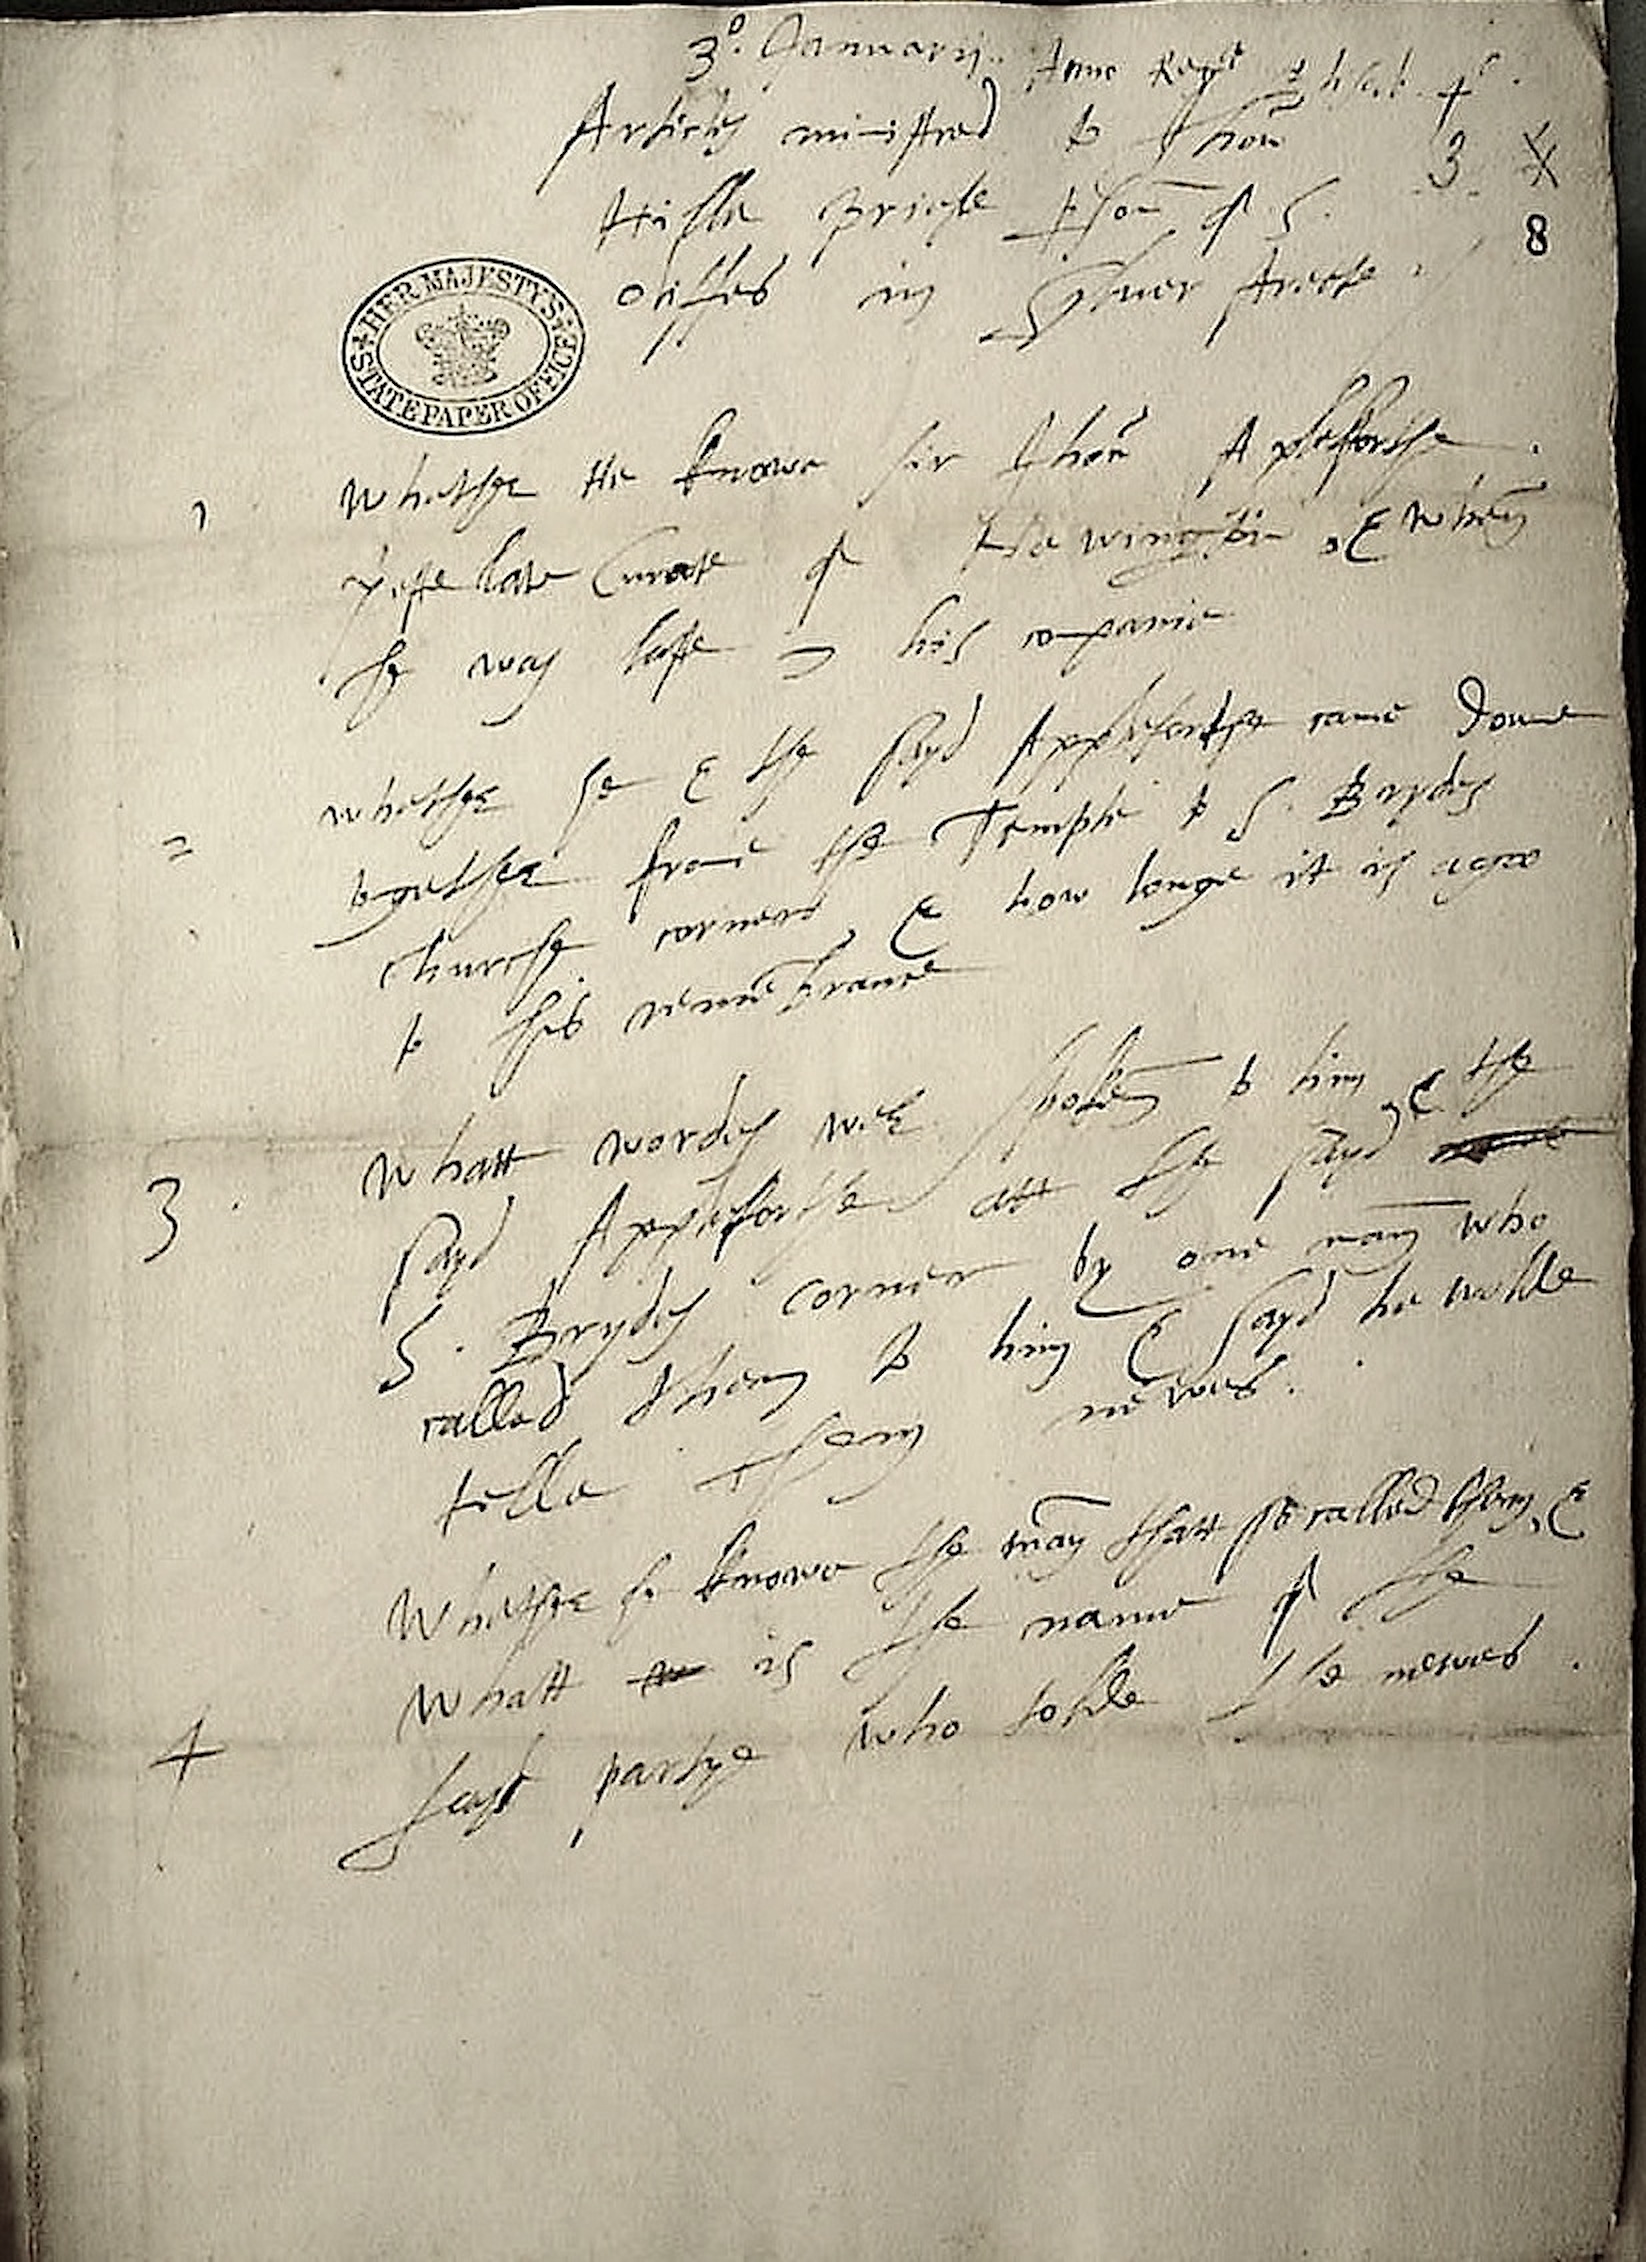 3º. Januarij. Anno Regni
Articles ministred to Thom̄
Hille prieste
in Sylver streate
3
8
HER MAJESTY'S STATE PAPER OFFICE
1 Whether He knowe sir Thom̄ Apleforthe
late Curate of & when
he was laste in his companie
2 whether he & the sayd Appleforthe came doune
together from̄ the Temple to S. Brydes
churche corner, & how longe it is agoo
to his remembrance
3 Whatt wordes were spoken to him, & the
sayd Appleforthe att the sayd
S. Brydes corner by one man who
called them to him & sayd he wolde
telle them newes.
4 Whether he knowe the man thatt so called them, &
Whatt is the name of the
sayd partye who tolde the newes.